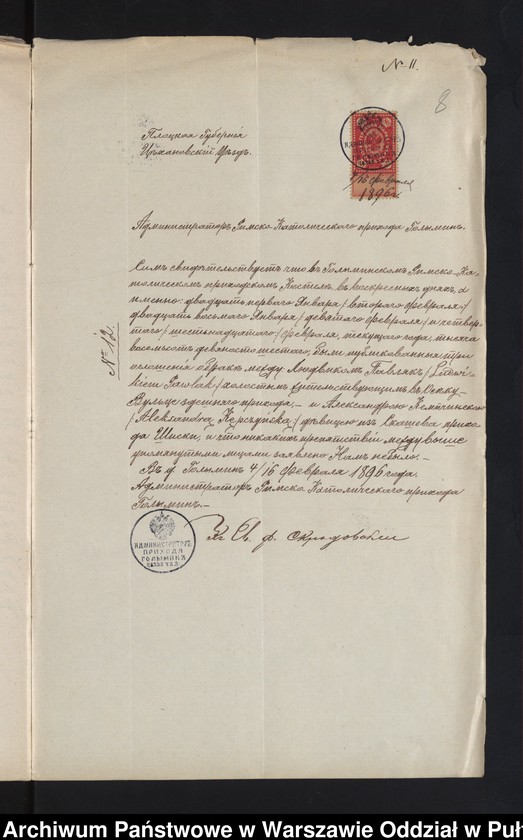 № 11.
8
Плоцкая Губернія
Цѣхановскій Уѣздъ.
4/16 Февраля
1896 г.
Администраторъ Римско-Католическаго прихода Голыминъ.
Симъ свидѣтельствуетъ что въ Голыминскомъ Римско-Ка-
толическомъ приходскомъ Костелѣ въ воскресныхъ дняхъ, а
именно: двадцать перваго Января /втораго Февраля,/
двадцать восьмаго Января /девятаго Февраля/ и четвер-
таго /шестнадцатаго/ Февраля, текущаго года, тысяча
восемьсотъ девяносто шестаго, были публикованныя три
оглашенія о бракѣ между Людвикомъ Павлякъ / Ludwi-
kiem Pawlak / холостымъ жительствующимъ въ
Вульце здѣшняго прихода, — и Александрою
/ Aleksandra / дѣвицею изъ прихо-
да и что никакихъ препятствій между выше
упомянутыми лицами заявлено Намъ небыло. —
Въ д. Голыминъ 4/16 Февраля 1896 года.
Администраторъ Римско Католическаго прихода
Голыминъ. —
№ 12
Кс. Св. ф.
АДМИНИСТРАТОРЪ
ПРИХОДА
ГОЛЫМИНЪ
Archiwum Państwowe w Warszawie Oddział w Puł